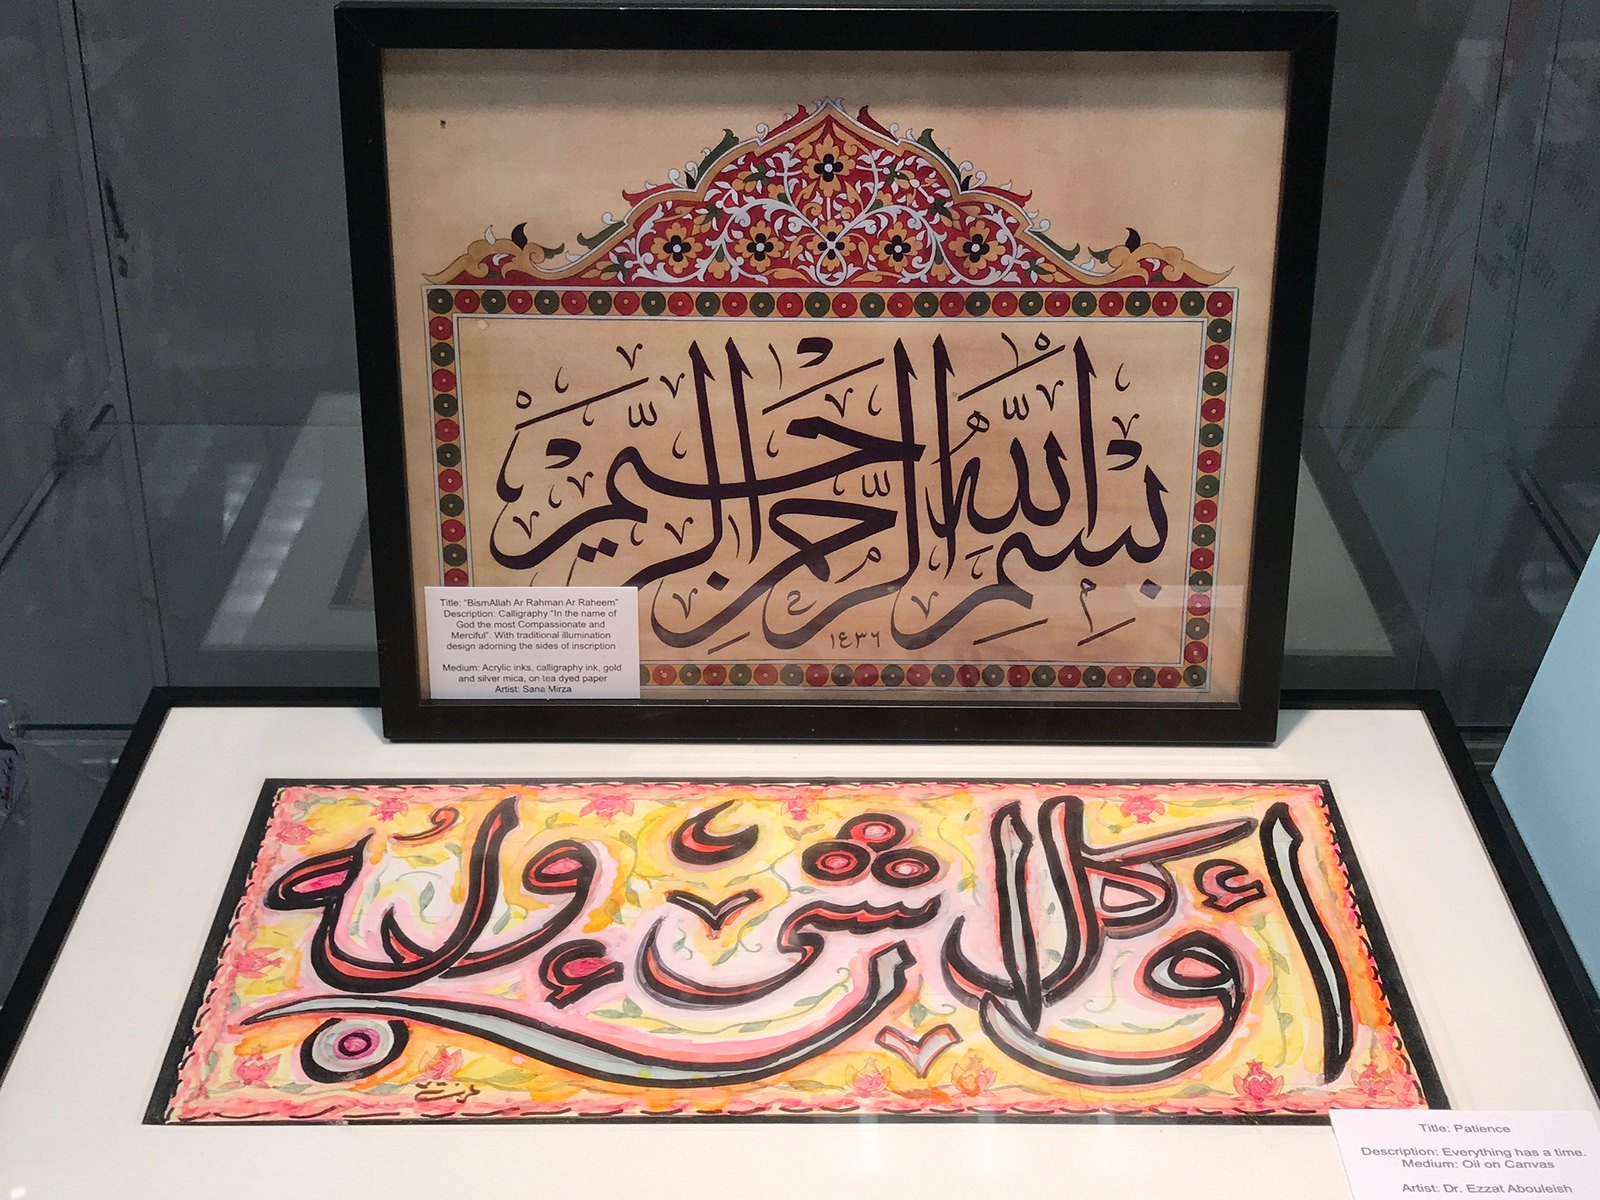 بِسْمِ اللهِ الرَّحْمٰنِ الرَّحِيمِ
١٤٣٦
Title: “BismAllah Ar Rahman Ar Raheem”
Description: Calligraphy “In the name of
God the most Compassionate and
Merciful”. With traditional illumination
design adorning the sides of inscription
Medium: Acrylic inks, calligraphy ink, gold
and silver mica, on tea dyed paper
Artist: Sana Mirza
كل شيء وله
Title: Patience
Description: Everything has a time.
Medium: Oil on Canvas
Artist: Dr. Ezzat Abouleish